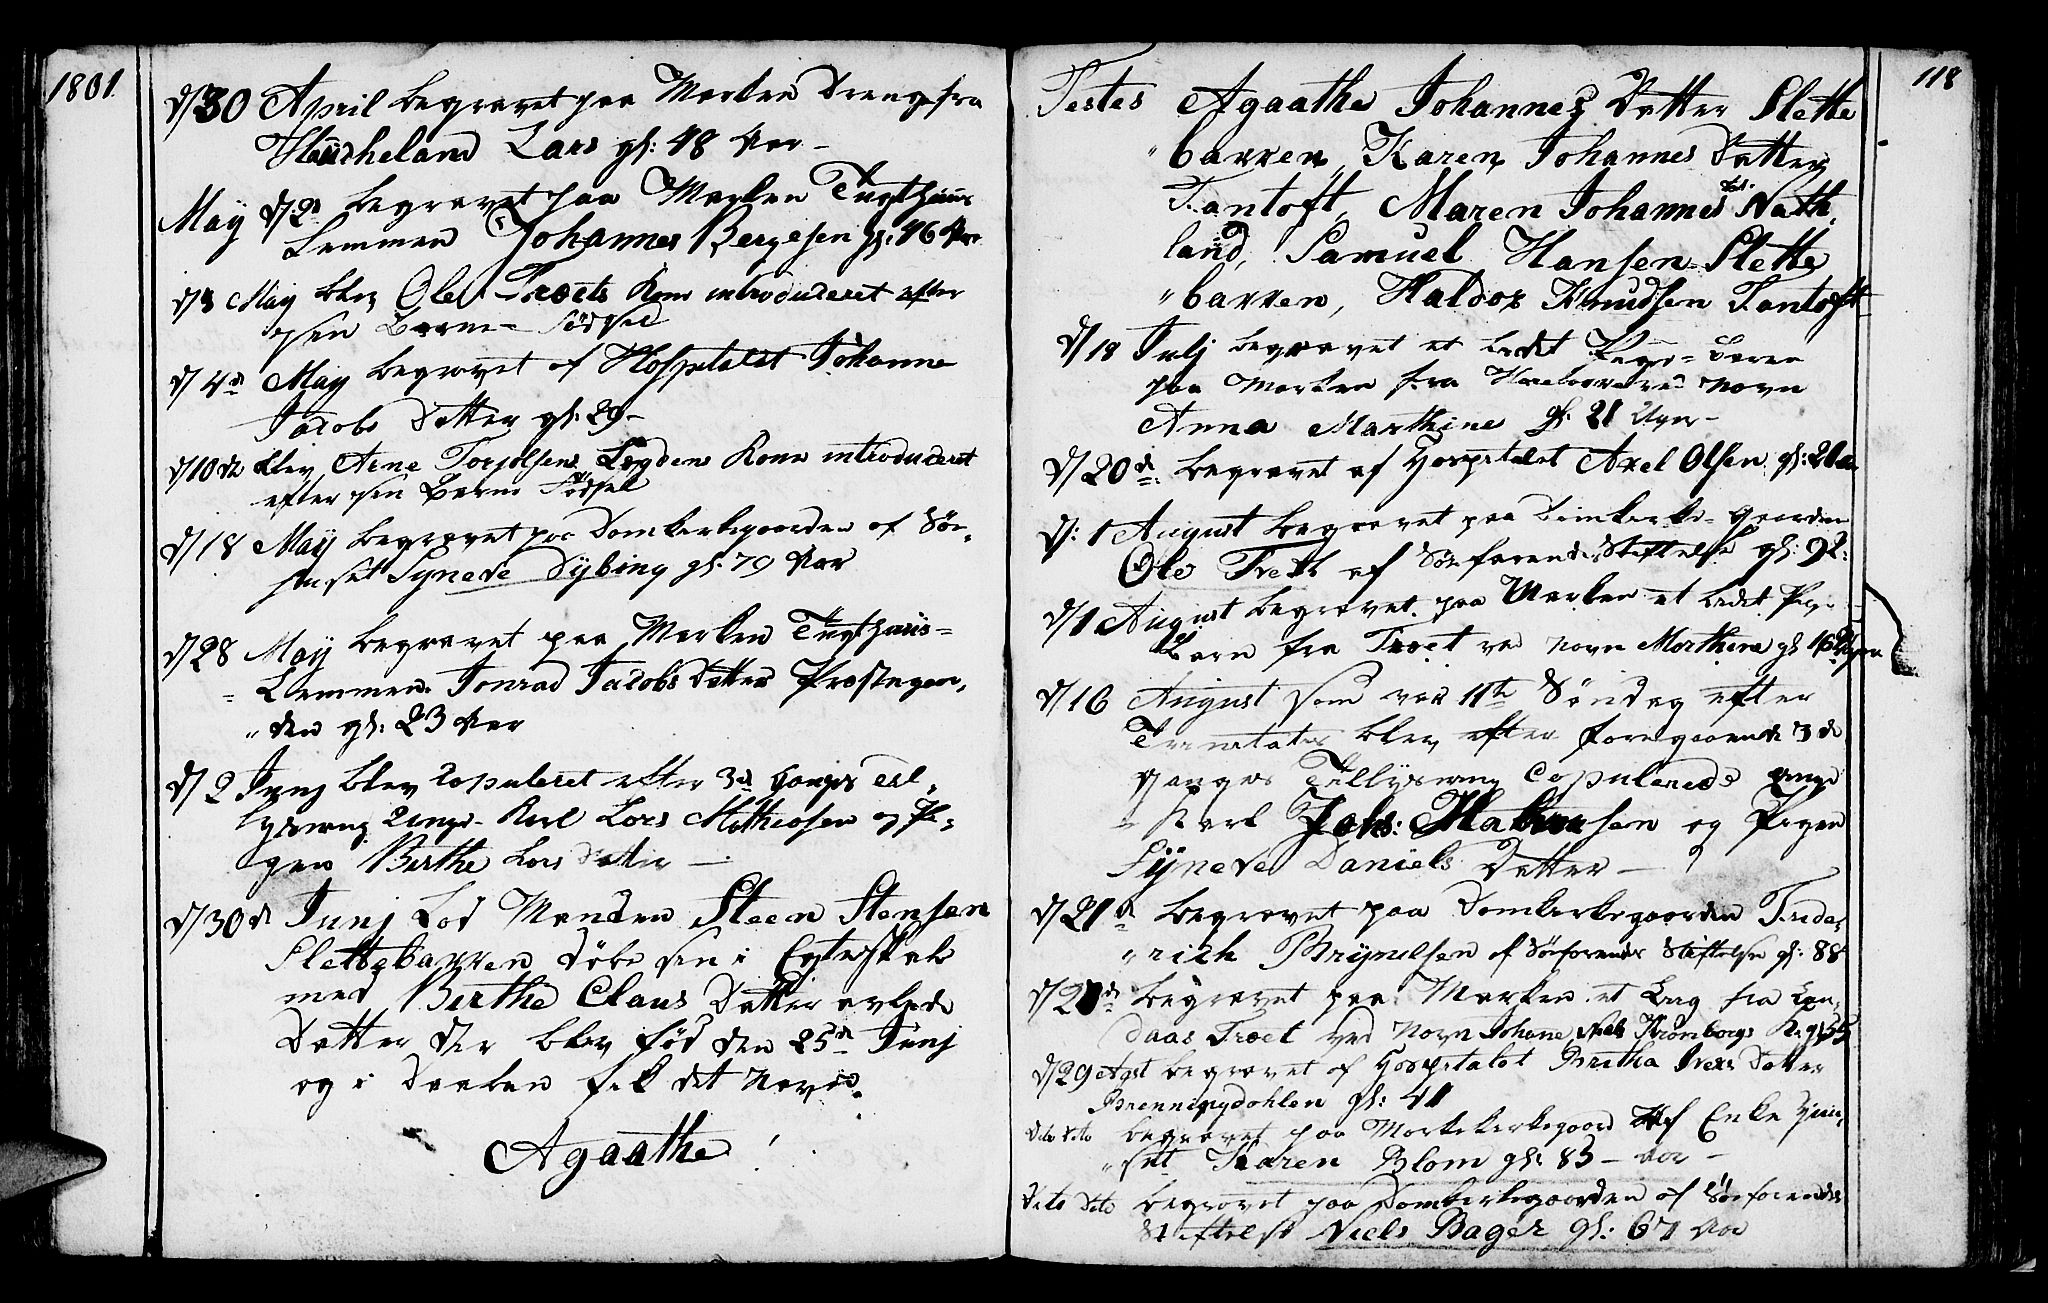 1801.
d/30 April begravet paa Marken Dreng fra
Haucheland Lars gl: 48 Aar –
May d/2d begravet paa Marken Tugthuus
Lemmen Johannes Bergesen gl: 46 Aar
d/3 May blev Ole Træets Kone introduceret efter
sin Barne= Födsel
d/4d May begravet af Hospitalet Johanna
Jacobs Datter gl: 29 –
d/10de blev Arne Torjolsens Legdens Kone introduceret
efter sin Barne Födsel
d/18 May begravet paa Domkerkegaarden af Söe,
huset Syneve Dybing gl: 79 Aar
d/28 May begravet paa Marken Tugthuus=
= Lemmen Jonrad Jacobs Datter Præstegen,
" den gl: 23 Aar
d/2 Junj blev Copuleret efter 3de Gangs Til,
lysning Unge Karl Lars Mathiesen og Pi,
gen Birthe Lars Datter –
d/30d Junj Lod Manden Steen Stensen
Slettebacken döbe sin i Egteskab
med Birthe Claus Datter avlede
Datter der blev föd den 25d Junj
og i Daaben fik det Navn
Agaathe
118
Testes Agaathe Johannes Datter Slette
" backen, Karen Johannes Datter
Fantoft, Maren Johannes Dat: Nath,
land, Samuel Hansen Slette
" backen, Haldor Knudsen Fantoft
d/18 Julj begravet et lidet Pige= Barn
paa Marken fra ved Navn
Anna Marthine gl: 21 Uger –
d/20d: begravet af Hospitalet Axel Olsen gl: 21
d: 1 August begravet paa Domkerke= Gaarden
Ole Træet af Söefarende Stiftelse gl: 92:
d/1 August begravet paa Marken et lidet Pige
Barn fra Træet ved Navn Marthine gl 16 Uger
d/16 August som var 11te Söndag efter
Trinitatis blev efter foregaaende 3de
Ganges Tillysning Copulerede unge
Karl Johs: og Pigen
Synneve Daniels Datter –
d/21d begravet paa Domkerkegaarden Frider,
" rich Brynelsen af Söefarendes Stiftelse gl: 88
d/2 de begravet paa Marken et Lig fra Lan,
daas Træet ved Navn Johane Niels Kromborgs K: gl 55
d/29 Agst begravet af Hospitalet Britha Niels Datter
gl: 41
Dito Dito begravet paa Markekerkegaard af Enke Huu,
" set Karen Blom gl: 83 – Aar –
Dito Dito begravet paa Domkerkegaarden af Söefarendes
Stiftelse Niels Bager gl: 67 Aar